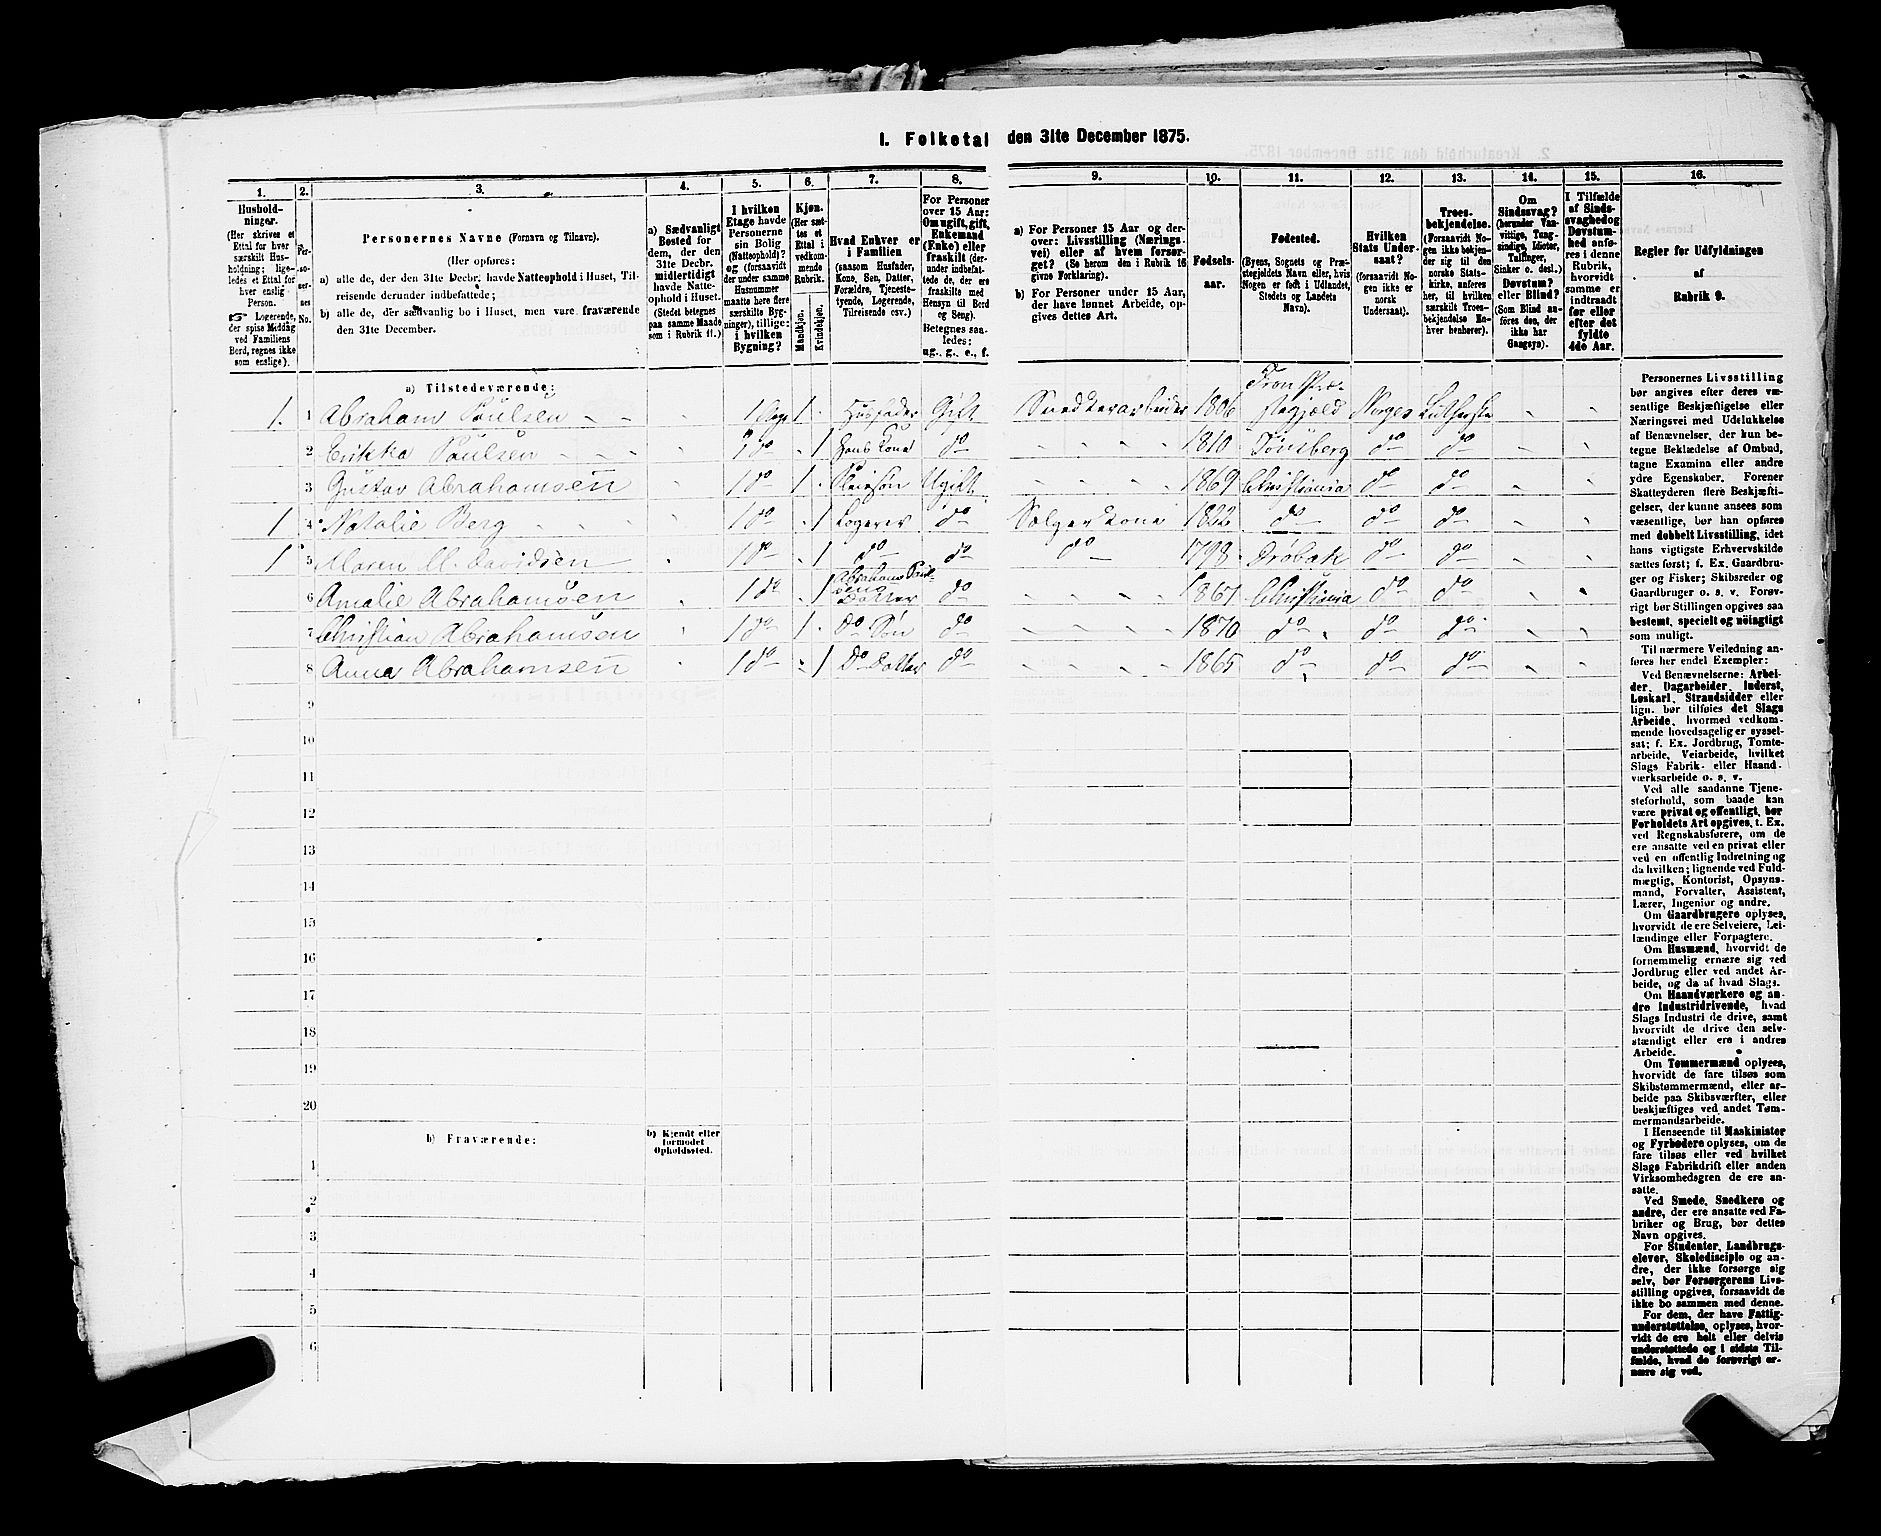 1. Folketal den 31te December 1875.
1. 2. 3. 4. 5. 6. 7. 8. 9. 10. 11. 12. 13. 14. 15. 16.
Husholdninger.
(Her skrives et
Ettal for hver
særskilt Husholdning;
ligeledes et Ettal for
hver enslig
Person.
Logerende,
der spise Middag
ved Familiens
Bord, regnes ikke
som enslige).
Personernes No.
Personernes Navne (Fornavn og Tilnavn).
(Her opføres:
a) alle de, der den 31te Decbr. havde Natteophold i Huset, Tilreisende derunder indbefattede;
b) alle de, der sædvanlig bo i Huset, men vare fraværende
den 31te December.
a) Sædvanligt
Bosted for
dem, der den
31te Decbr.
midlertidigt
havde Natteophold
i Huset.
(Stedet betegnes
paa samme Maade
som i Rubrik 11.)
I hvilken
Etage havde
Personerne
sin Bolig
(Natteophold)?
og (forsaavidt
der under samme
Husnummer
maatte høre flere
særskilte Bygninger),
tillige:
i hvilken
Bygning?
Kjøn.
(Her sættes
et
Ettal i
vedkommende
Rubrik.
Mandkjøn.
Kvindekjøn.
Hvad Enhver er
i Familien
(saasom Husfader,
Kone, Søn, Datter,
Forældre, Tjenestetyende,
Logerende,
Tilreisende osv.)
For Personer
over 15 Aar:
Om ugift, gift,
Enkemand
(Enke) eller
fraskilt (derunder
indbefattede
de, der ere
fraskilte med
Hensyn til Bord
og Seng).
Betegnes saaledes:
ug., g., e., f.
a) For Personer 15 Aar og derover:
Livsstilling (Næringsvei)
eller af hvem forsørget?
(Se herom den i Rubrik 16
givne Forklaring).
b) For Personer under 15 Aar,
der have lønnet Arbeide, opgives
dettes Art.
Fødselsaar.
Fødested.
(Byens, Sognets og Præstegjeldets
Navn eller, hvis
Nogen er født i Udlandet,
Stedets og Landets
Navn).
Hvilken
Stats Undersaat?
(forsaavidt Nogen
ikke er
norsk
Undersaat).
Troesbekjendelse.
(Forsaavidt Nogen
ikke bekjender
sig til den
norske Statskirke,
anføres
her, til hvilken
særskilt Troesbekjendelse
Enhver
henhører).
Om
Sindssvag?
(herunder Vanvittige,
Tungsindige,
Idioter,
Tullinger,
Sinker o. desl.)
Døvstum?
eller Blind?
(Som Blind anføres
den, der
ikke har
Gangsyn).
I Tilfælde
af Sindssvaghed
og
Døvstumhed
anføres
i denne
Rubrik,
hvorvidt
samme er
indtraadt
før eller
efter det
fyldte
4de Aar.
Regler for Udfyldningen
af
Rubrik 9.
a) Tilstedeværende:
1. 1 Abraham Paulsen 1 Etage 1 Husfader Gift Snedkerarbeider 1806 Fron Præstegjæld Norges Lutherske
2 Erikka Paulsen 1 do 1 Hans Kone do 1810 Tønsberg do do
3 Gustav Abrahamsen 1 do 1 Pleiesøn Ugift 1869 Christiania do do
1 4 Natalie Berg 1 do 1 Logerer do Sælgerkone 1822 do do do
1 5 Maren M. Davidsen 1 do 1 do do do 1798 Drøbak do do
6 Amalie Abrahamsen 1 do 1 Abraham Paulsens Datter do 1867 Christiania do do
7 Christian Abrahamsen 1 do 1 Do Søn do 1870 do do do
8 Anna Abrahamsen 1 do 1 Do Datter do 1865 do do do
9
10
11
12
13
14
15
16
17
18
19
20
b) Fraværende:
b) Kjendt eller
formodet
Opholdssted.
1
2
3
4
5
6
Personernes Livsstilling
bør angives efter deres væsentlige
Beskjæftigelse eller
Næringsvei med Udelukkelse
af Benævnelser, der kun betegne
Beklædelse af Ombud,
tagne Examina eller andre
ydre Egenskaber. Forener
Skatteyderen flere Beskjæftigelser,
der kunne ansees som
væsentlige, bør han opføres
med dobbelt Livsstilling, idet
hans vigtigste Erhvervskilde
sættes først; f. Ex. Gaardbruger
og Fisker; Skibsreder og
Gaardbruger o. s. v. Forøvrigt
bør Stillingen opgives saa
bestemt, specielt og nöiagtigt
som muligt.
Til nærmere Veiledning anføres
her endel Exempler:
Ved Benævnelserne: Arbeider,
Dagarbeider, Inderst,
Løskarl, Strandsidder eller
lign. bør tilføies det Slags
Arbeide, hvormed vedkommende
hovedsagelig er sysselsat;
f. Ex. Jordbrug, Tomtearbeide,
Veiarbeide, hvilket
Slags Fabrik- eller Haandværksarbeide
o. s. v.
Ved alle saadanne Tjenesteforhold,
som baade kan
være privat og offentligt, bør
Forholdets Art opgives, t. Ex.
ved Regnskabsførere, om de
ere ansatte ved en privat eller
ved en offentlig Indretning og
da hvilken; lignende ved Fuldmægtig,
Kontorist, Opsynsmand,
Forvalter, Assistent,
Lærer, Ingeniør og andre.
Om Gaardbrugere oplyses,
hvorvidt de ere Selveiere, Leilændinge
eller Forpagtere.
Om Husmænd, hvorvidt de
fornemmelig ernære sig ved
Jordbrug eller ved andet Arbeide,
og da af hvad Slags.
Om Haandværkere og andre
Industridrivende, hvad
Slags Industri de drive, samt
hvorvidt de drive den selvstændigt
eller ere i andres
Arbeide.
Om Tømmermænd oplyses,
hvorvidt de fare tilsøs som
Skibstømmermænd, eller arbeide
paa Skibsværfter, eller
beskjæftiges ved andet Tømmermandsarbeide.
I Henseende til Maskinister
og Fyrbødere oplyses, om de
fare tilsøs eller ved hvilket
Slags Fabrikdrift eller anden
Virksomhedsgren de ere ansatte.
Ved Smede, Snedkere og
andre, der ere ansatte ved Fabriker
og Brug, bør dettes
Navn opgives.
For Studenter, Landbrugselever,
Skoledisciple og andre,
der ikke forsørge sig
selv, bør Forsørgerens Livsstilling
opgives, forsaavidt de
ikke bo sammen med denne.
For dem, der have Fattigunderstøttelse,
oplyses, hvorvidt
de ere helt eller delvis
understøttede og i sidste Tilfælde,
hvad de forøvrigt ernære
sig ved.